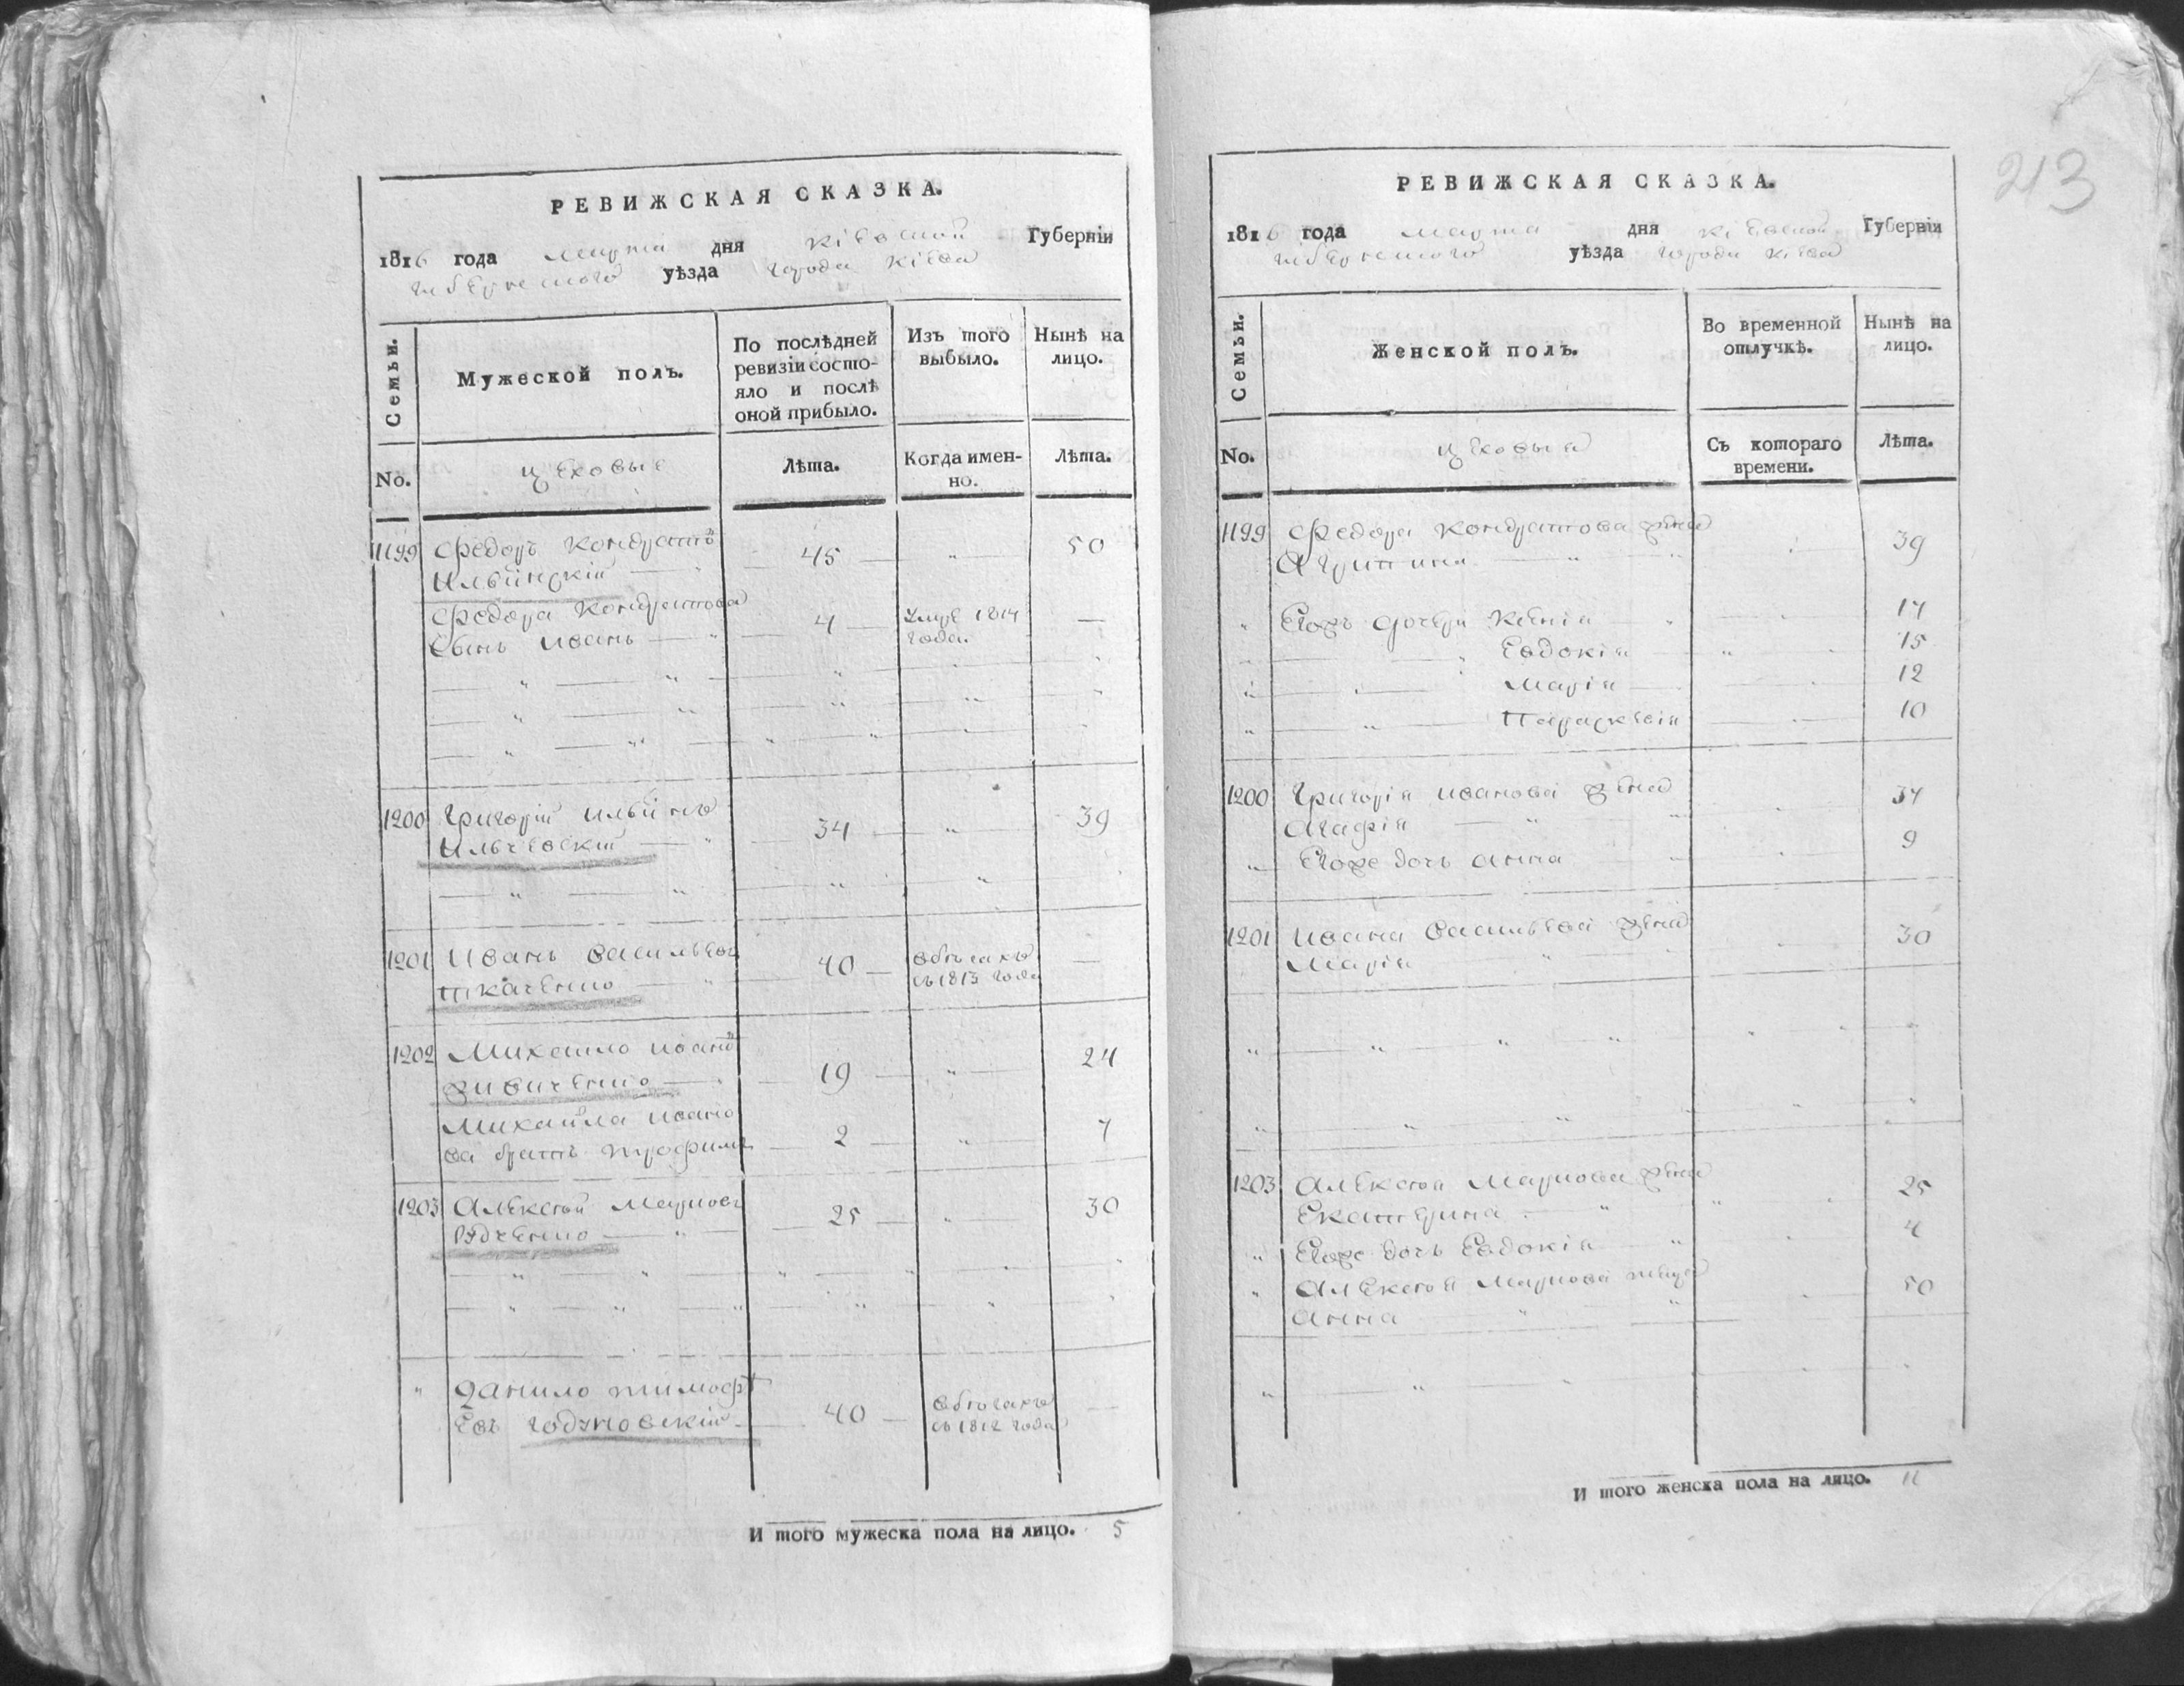 РЕВИЖСКАЯ СКАЗКА.
1816 года марта дня Кіевской Губерніи
губернского уѣзда города Кіева
Семьи.
Мужеской полъ.
По послѣдней ревизіи состо-
яло и послѣ
оной прибыло.
Изъ того
выбыло.
Нынѣ на
лицо.
No.
цеховые
Лѣта.
Когда имен-
но.
Лѣта.
1199 Федоръ Кондратовъ 45 50
Ильинскій
Федора Кондратова 4 умре 1814
сынъ Иванъ года
1200 Григорій 34 39
Ильчевскій
1201 Иванъ Васильевъ 40 въ бегахъ
Ткаченко съ 1813 года
1202 Михайло Ивановъ 19 24
Михайла Ивано
ва братъ Трофимъ 2 7
1203 Алексѣй Марковъ 25 30
Данило Тимофѣ
евъ 40 въ бегахъ
съ 1812 года
И того мужеска пола на лицо. 5
213
РЕВИЖСКАЯ СКАЗКА.
1816 года марта дня Кіевской Губерніи
губернского уѣзда города Кіева
Семьи.
Женской полъ.
Во временной
отлучкѣ.
Нынѣ на
лицо.
No.
цеховыя
Съ котораго
времени.
Лѣта.
1199 Федора Кондратова жена
Агрипина 39
Егожъ дочери Ксенія 17
Евдокія 15
Марія 12
Параскевія 10
1200 Григорія Иванова жена 34
Агафія
Егоже дочь Анна 9
1201 Ивана Васильева жена 30
Марія
1203 Алексѣя Маркова жена 25
Екатерина
Егоже дочь Евдокія 4
Алексѣя Маркова теща 50
Анна
И того женска пола на лицо. 11